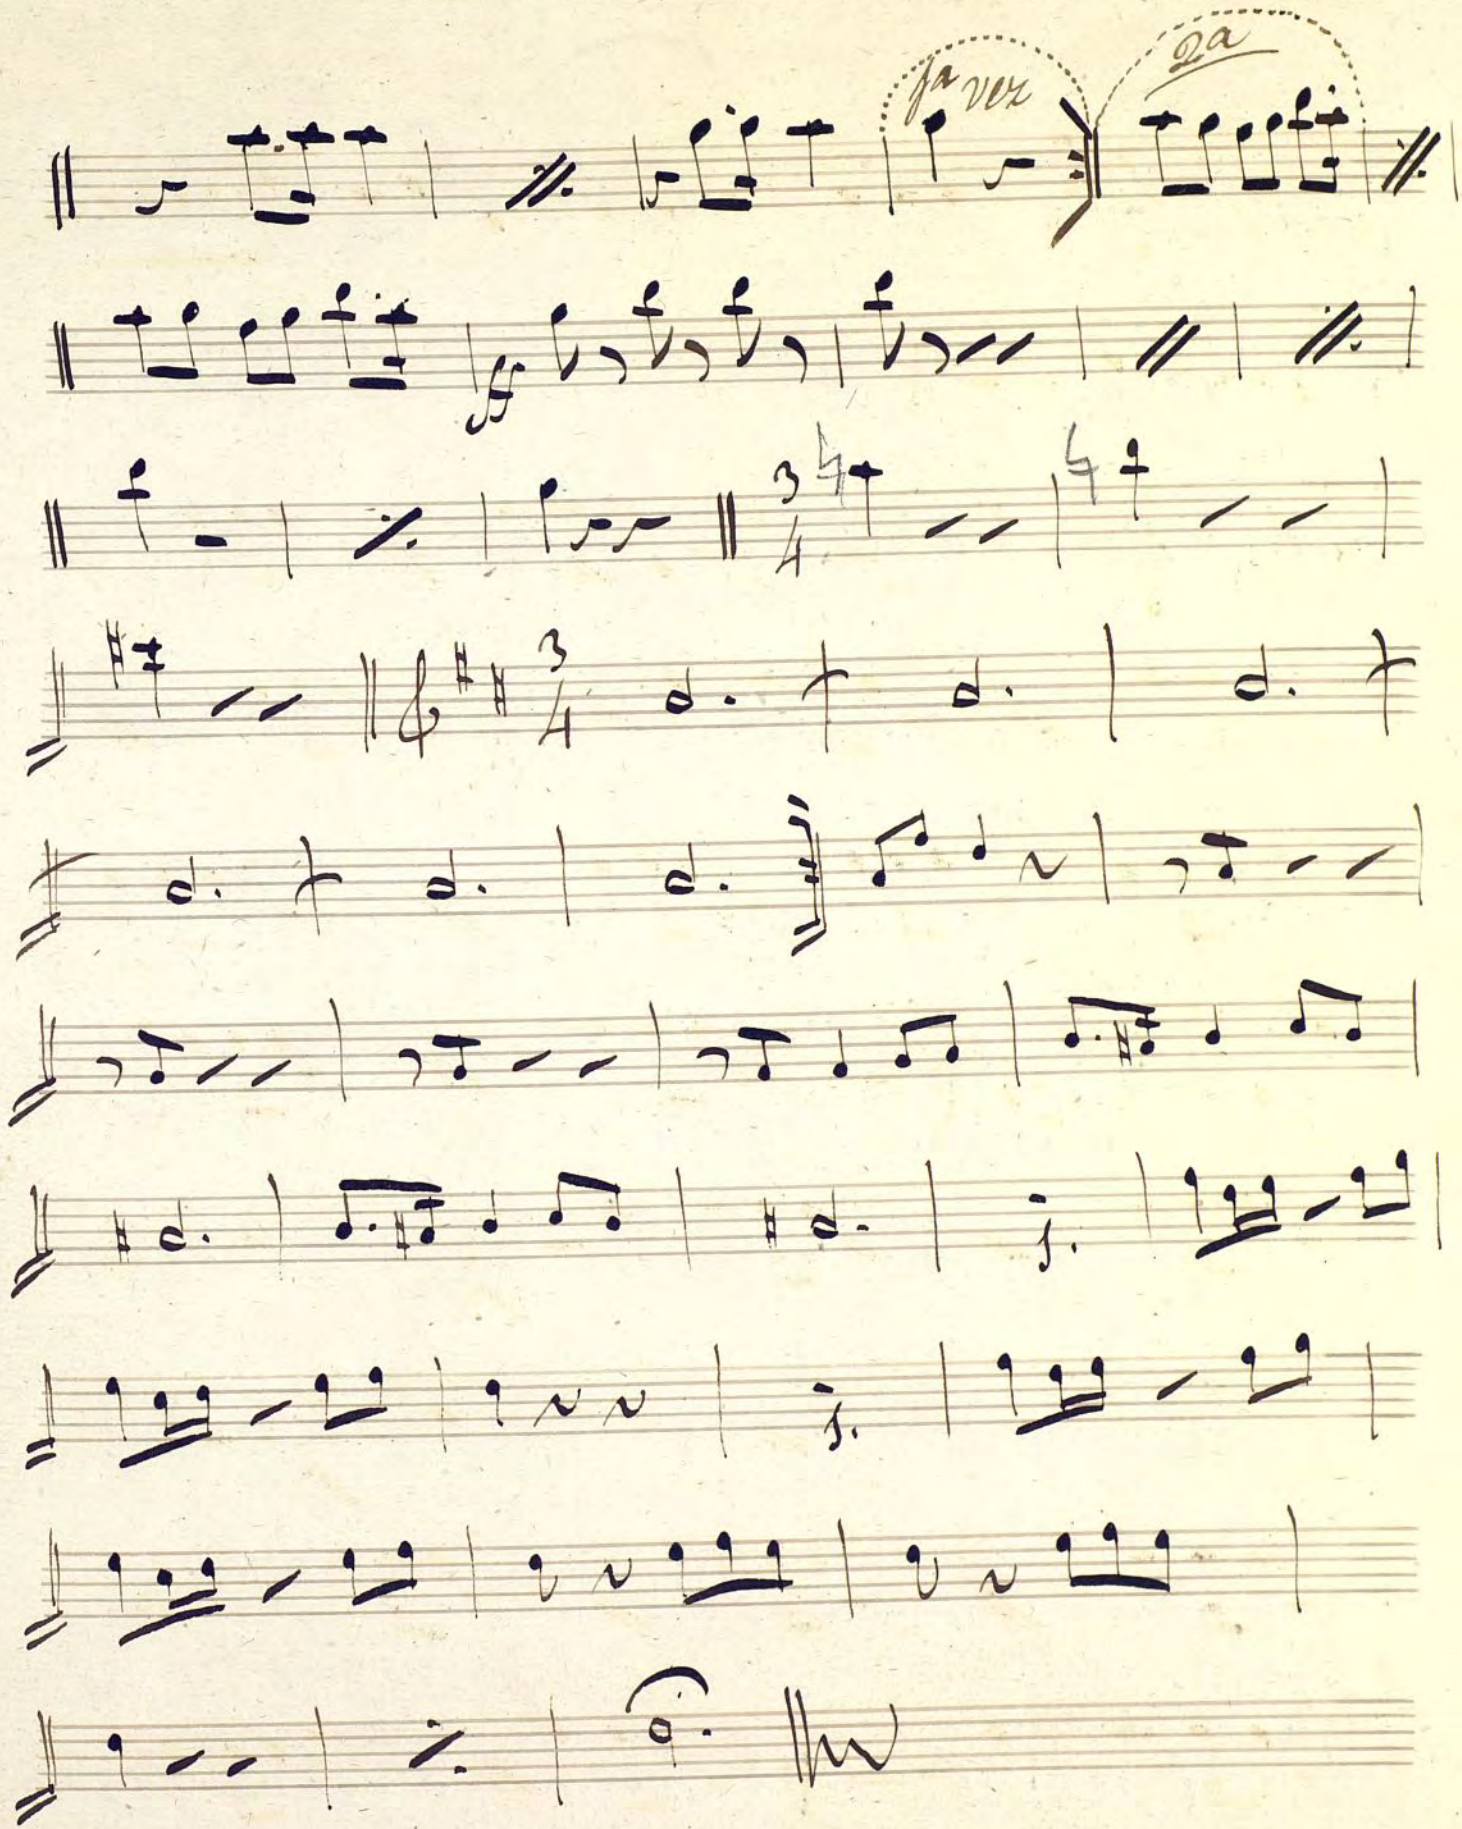 1a vez 2a
ff
3
4
3
4